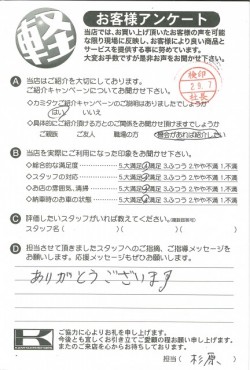 軽
お客様アンケート
当店では、お買い上げ頂いたお客様の声を可能
な限り現場に反映し、お客様により良い商品と
サービスを提供する事に努めています。
大変お手数ですが是非お声をお聞かせ下さい。
検印
2.8.7
社長
A 当店はご紹介を大切にしております。
ご紹介キャンペーンについてお聞かせ下さい。
◇カミタケご紹介キャンペーンのご説明はありましたでしょうか
はい いいえ
◇具体的にご紹介頂ける方とのご関係をお聞かせ頂けますでしょうか
ご親族 ご友人 職場の方 機会があれば紹介したい
B 当店を実際にご利用になった印象をお聞かせ下さい。
◇総合的な満足度 5.大満足 4.満足 3.ふつう 2.やや不満 1.不満
◇スタッフの対応 5.大満足 4.満足 3.ふつう 2.やや不満 1.不満
◇お店の雰囲気、清掃 5.大満足 4.満足 3.ふつう 2.やや不満 1.不満
◇納車時のお車の状態 5.大満足 4.満足 3.ふつう 2.やや不満 1.不満
C 評価したいスタッフがいれば教えてください。(複数回答可)
スタッフ名( )( )
D 担当させて頂きましたスタッフへのご指摘、ご指導メッセージを
お願いします。応援メッセージもぜひお願い致します。
ありがとうございます
K
ご協力に心よりお礼を申し上げます。
今後とも宜しくお引き立てご愛顧の程お願い申し上げます。
またのご来店を心からお待ちしております。
担当( 杉原 )